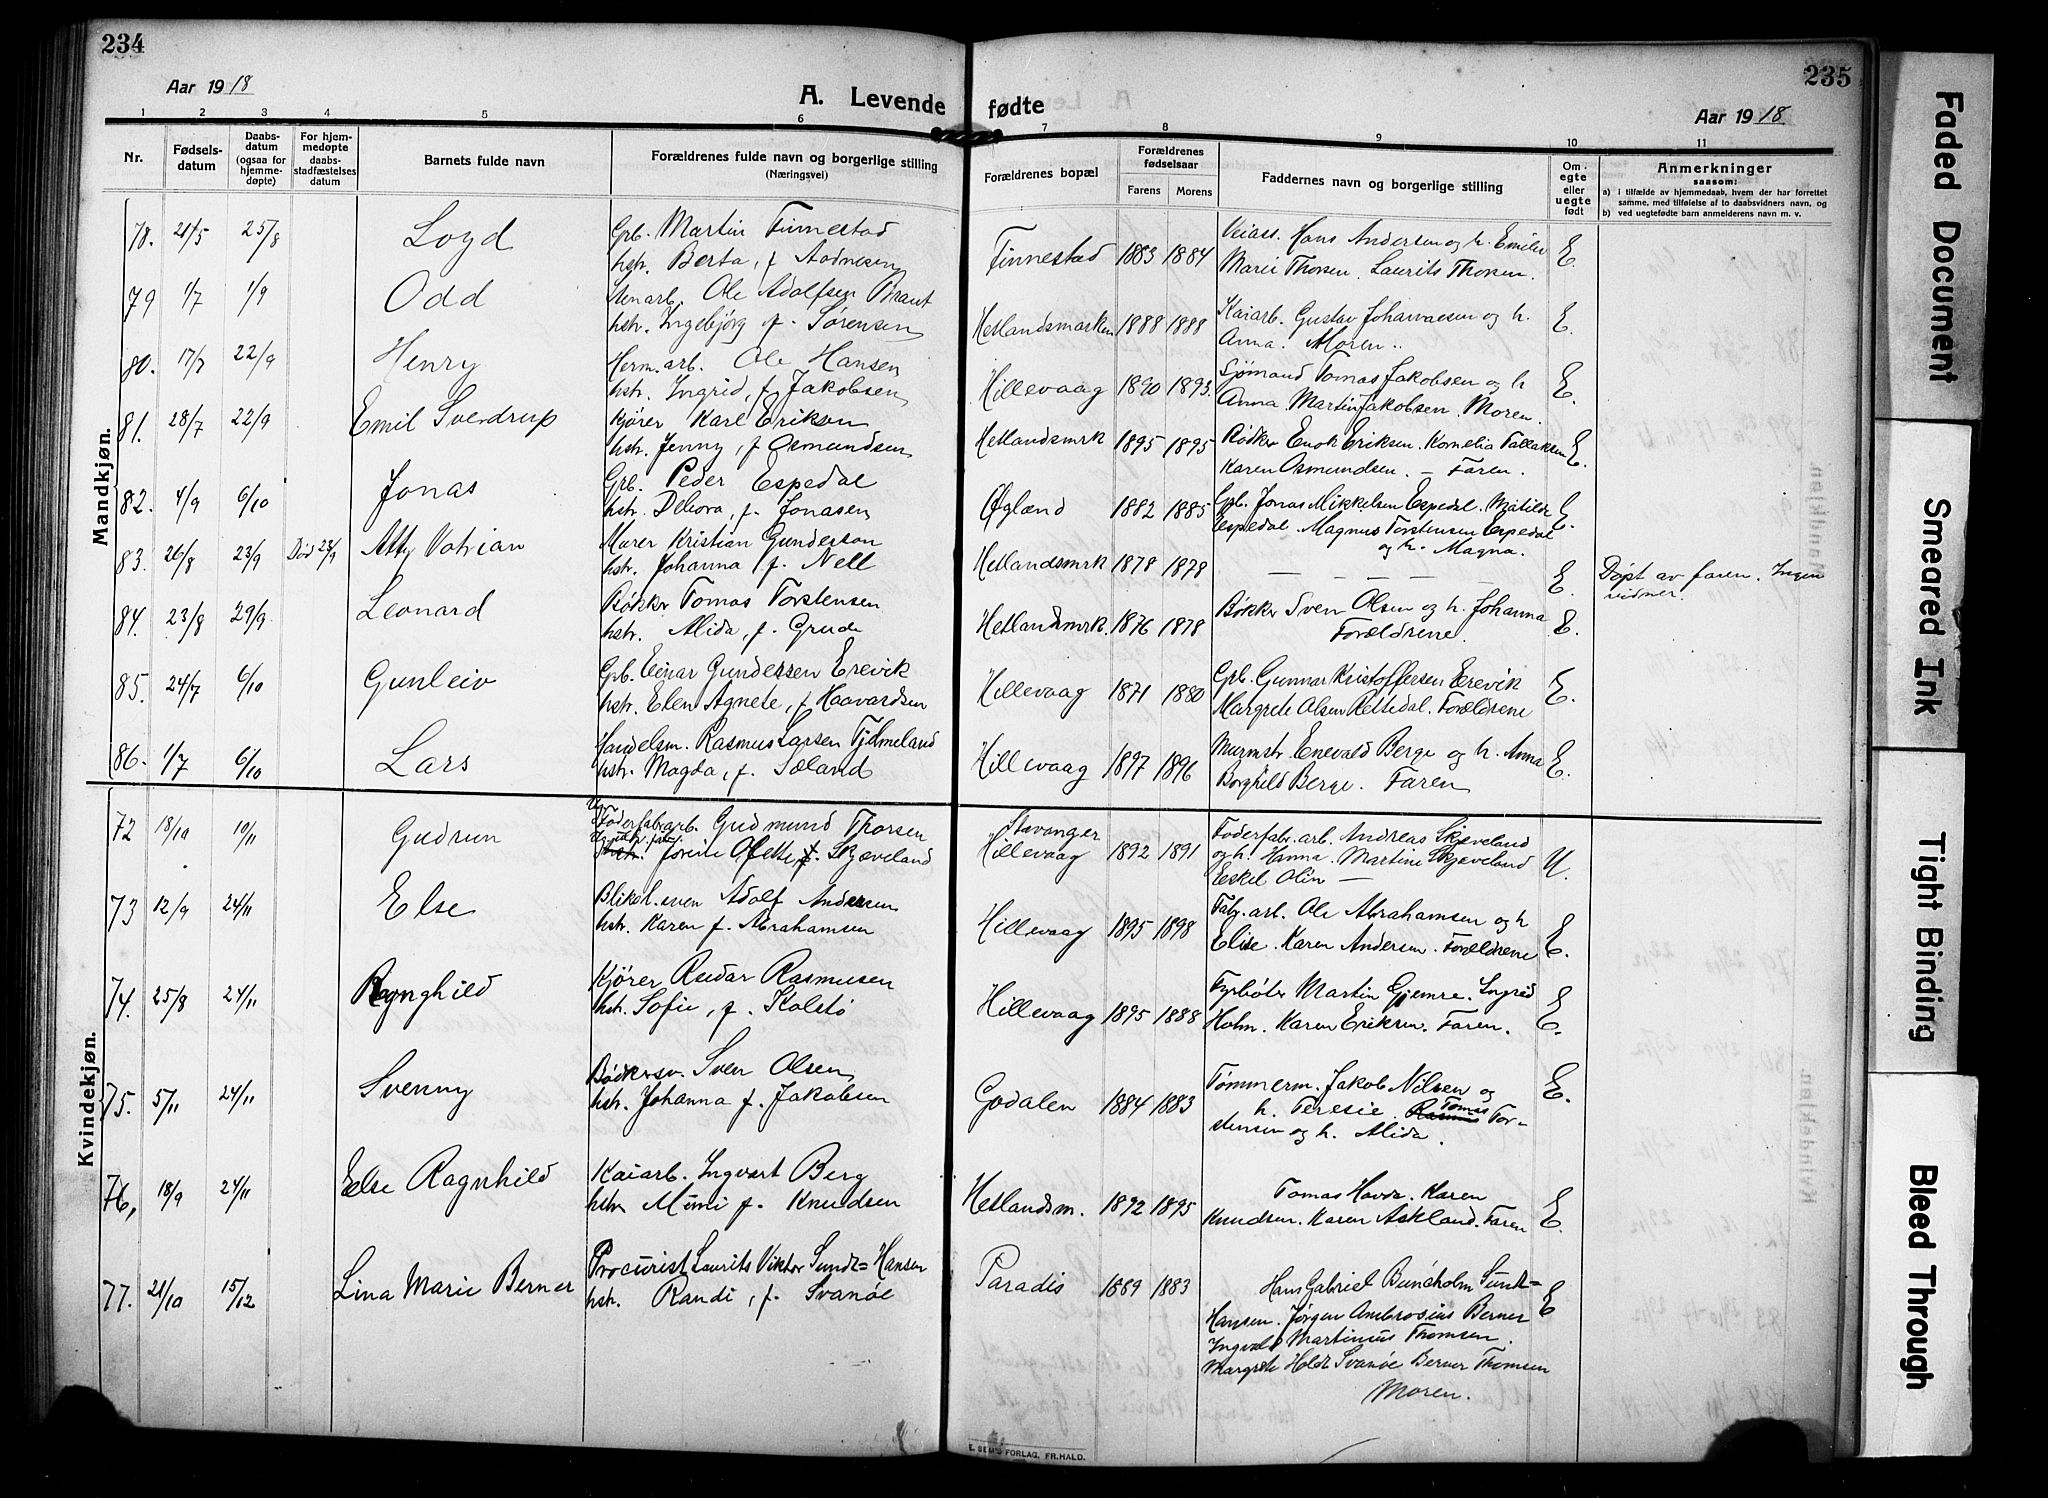 234
Aar 1918
A. Levende
1 2 3 4 5 6
Nr.
Fødsels-
datum
Daabs-
datum
(ogsaa for
hjemme-
døpte)
For hjem-
medøpte
daabs-
stadfæstelses
datum
Barnets fulde navn
Forældrenes fulde navn og borgerlige stilling
(Næringsvei)
Mandkjøn.
78. 21/5 25/8 Loyd Grb. Martin Finnestad
hstr. Berta, f. Aadnesen
79 1/7 1/9 Odd Stenarb. Ole Adolfsen Braut
hstr. Ingebjørg f. Sørensen
80. 17/7 22/9 Henry Herm.arb. Ole Hansen
hstr. Ingrid, f. Jakobsen
81. 28/7 22/9 Emil Sverdrup Kjører Karl Eriksen
hstr. Jenny, f Osmundsen
82. 4/9 6/10 Jonas Grb. Peder Espedal
hstr. Debora, f. Jonasen
83. 26/8 23/9 Murer Kristian Gundersen
hstr. Johanna f. Nell
84. 23/8 29/9 Leonard Bøkker Tomas Torstensen
hstr. Alida, f. Grude
85. 24/7 6/10 Gunleiv Grb. Einar Gundersen Erevik
hstr. Elen Agnete, f. Haavardsen
86. 1/7 6/10 Lars Handelsm. Rasmus Larsen Tjdmeland
hstr. Magda, f. Sæland
Kvindekjøn.
72 18/10 10/11 Gudrun Foderfabrarb. Gudmund Thorsen
Ofette, f. Skjæveland
73 12/9 24/11 Else Adolf Andersen
hstr. Karen f. Abrahamsen
74. 25/8 24/11 Ragnghild Kjører Reidar Rasmusen
hstr. Sofie, f. Kolstø
75. 5/11 24/11 Svenny Bødkersv. Sven Olsen
hstr. Johanna f. Jakobsen
76, 18/9 24/11 Else Ragnhild Kaiarb. Ingvart Berg
hstr Mimi f. Knudsen
77. 21/10 15/12 Lina Marie Berner Procurist Laurits Viktor Sundt=Hansen
hstr. Randi, f. Svanøe
235
fødte
Aar 1918
7 8 9 10 11
Forældrenes bopæl
Forældrenes
fødselsaar
Farens Morens
Faddernes navn og borgerlige stilling
Om
egte
eller
uegte
født
Anmerkninger
saasom:
a) i tilfælde av hjemmedaab, hvem der har forrettet
samme, med tilføielse af to daabsvidners navn, og
b) ved uegtefødte barn anmelderens navn m. v.
Finnestad 1883 1884 Veiass. Hans Andersen og h. Emilie E.
Marie Thorsen. Laurits Thorsen.
Hetlandsmarken 1888 1888 Kaiarb. Gustav Johannesen og h. E.
Anna. Moren.
Hillevaag 1890 1893. Sjømand Tomas Jakobsen og h E.
Anna. Martin Jakobsen. Moren.
Hetlandsmrk 1895 1895 Bødker Enok Eriksen. Kornelia Tallaksen E.
Karen Osmundsen. – Faren.
Øglænd 1882 1885 Grb. Jonas Mikkelsen Espedal. Matilde E.
Espedal. Magnus Torstensen Espedal
og h. Magna.
Hetlandsmrk 1878 1878 – – – – – – E. Døpt av faren. Ingen
vidner.
Hetlandsmrk. 1876 1878 Bøkker Sven Olsen og h. Johanna E.
Forældrene.
Hillevaag 1871 1880 Grb. Gunnar Kristoffersen Erevik E.
Margrete Olsen Rettedal. Forældrene
Hillevaag 1897 1896 Murmstr. Enevald Berge og h. Anna E.
Borghild Berge. Faren
Stavanger
Hillevaag 1892 1891 Foderfabr. arb. Andreas Skjæveland U.
og h. Hanna. Martine Skjæveland
Eskel Olin –
Hillevaag 1895 1898 Fabr. arb. Ole Abrahamsen og h E.
Elise. Karen Andersen. Forældrene
Hillevaag 1895 1888 Fyrbøter Martin Gjemre. Ingrid E.
Holm. Karen Eriksen. Faren.
Godalen 1884 1883 Tømmerm. Jakob Nilsen og E.
h. Teresie. Rasmus Tomas Tor-
stensen og h. Alida.
Hetlandsm. 1892 1895 Tomas Hovda. Karen E.
Knudsen. Karen Askland. Faren
Paradis 1889 1883 Hans Gabriel Bunæholm Sundt= E
Hansen. Jørgen Ambrosius Berner
Ingvald Martinius Thomsen.
Margrete Holdt Svanøe Berner Thomsen
Moren.
E. SEM'S FORLAG, FR.HALD.
Faded Document
Smeared Ink
Tight Binding
Bleed Through